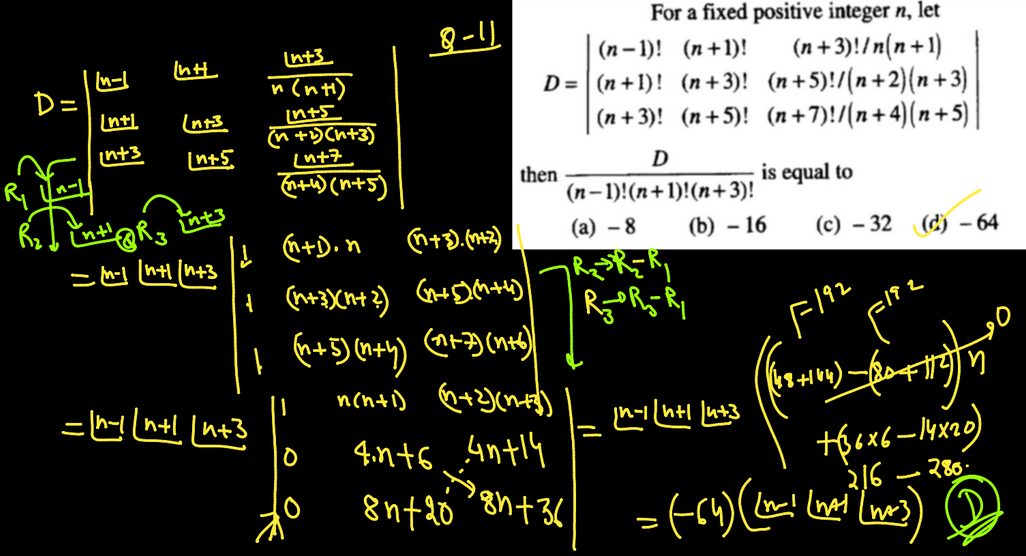 8-11
For a fixed positive integer n, let
D = | (n−1)! (n+1)! (n+3)!/n(n+1) |
| (n+1)! (n+3)! (n+5)!/(n+2)(n+3) |
| (n+3)! (n+5)! (n+7)!/(n+4)(n+5) |
then D/((n−1)!(n+1)!(n+3)!) is equal to
(a) −8 (b) −16 (c) −32 (d) −64
D = | ⌊n-1 ⌊n+1 ⌊n+3/n(n+1) |
| ⌊n+1 ⌊n+3 ⌊n+5/(n+2)(n+3) |
| ⌊n+3 ⌊n+5 ⌊n+7/(n+4)(n+5) |
R1 ⌊n-1
R2 ⌊n+1 & R3 ⌊n+3
= ⌊n-1 ⌊n+1 ⌊n+3 | 1 (n+1).n (n+3).(n+2) |
| 1 (n+3)(n+2) (n+5)(n+4) |
| 1 (n+5)(n+4) (n+7)(n+6) |
R2→R2-R1
R3→R3-R1
= ⌊n-1 ⌊n+1 ⌊n+3 | 1 n(n+1) (n+2)(n+3) |
| 0 4n+6 4n+14 |
| 0 8n+20 8n+36 |
192 192
= ⌊n-1 ⌊n+1 ⌊n+3 ((48+144)-(80+112))n 0
+(36×6-14×20)
216-280.
= (-64)(⌊n-1 ⌊n+1 ⌊n+3) D